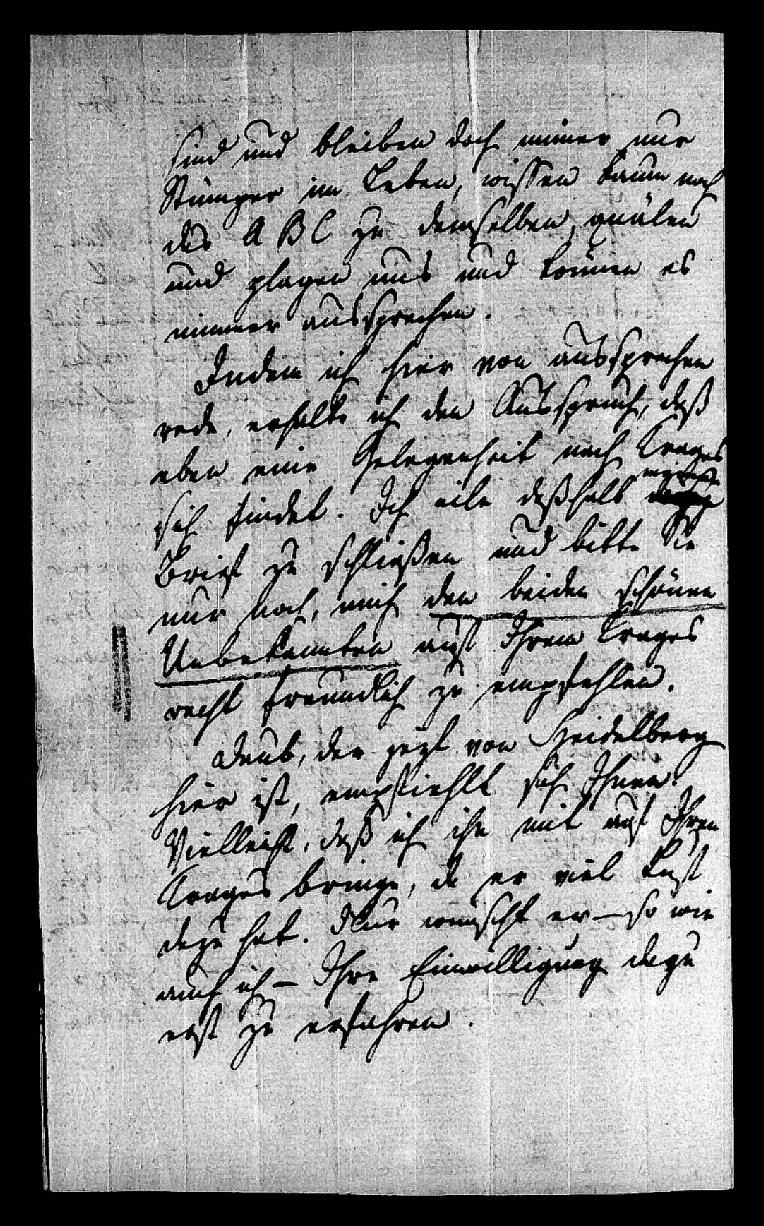 sind und bleiben doch immer nur
Stümper im Leben, wissen kaum noch
das A B C zu demselben, quälen
und plagen uns und können es
nimmer aussprechen.
Indem ich hier von aussprechen
rede, erhalte ich den Ausspruch, daß
eben eine Gelegenheit nach Trages
sich findet. Ich eile deßhalb meinen
Brief zu schließen und bitte Sie
nur noch, mich den beiden schönen
Unbekannten auf Ihrem Trages
recht freundlich zu empfehlen.
Daub, der jezt von Heidelberg
hier ist, empfiehlt sich Ihnen.
Vielleicht, daß ich ihn mit auf Ihren
Trages bringe, da er viel Lust
dazu hat. Nur wünscht er – so wie
auch ich – Ihre Einwilligung dazu
erst zu erfahren.